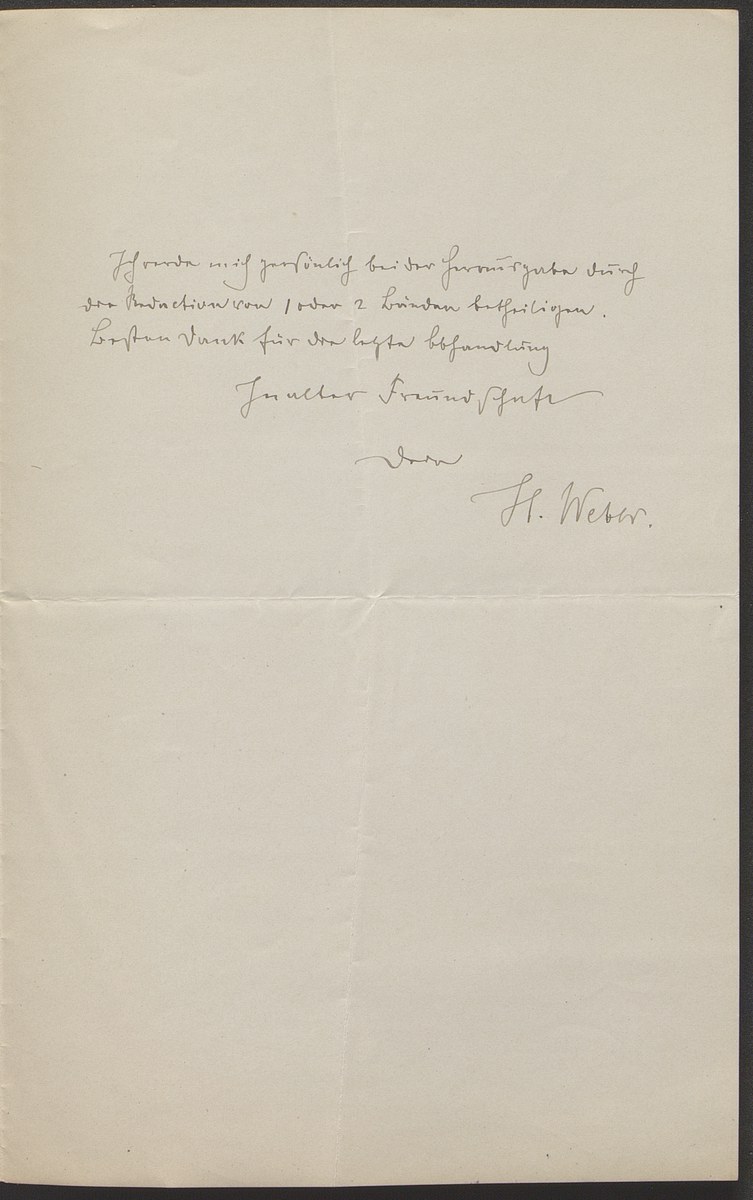 Ich werde mich persönlich bei der Herausgabe durch
die Redaction von 1 oder 2 Bänden betheiligen.
Besten Dank für die letzte Abhandlung
In alter Freundschaft
Dein
H. Weber.